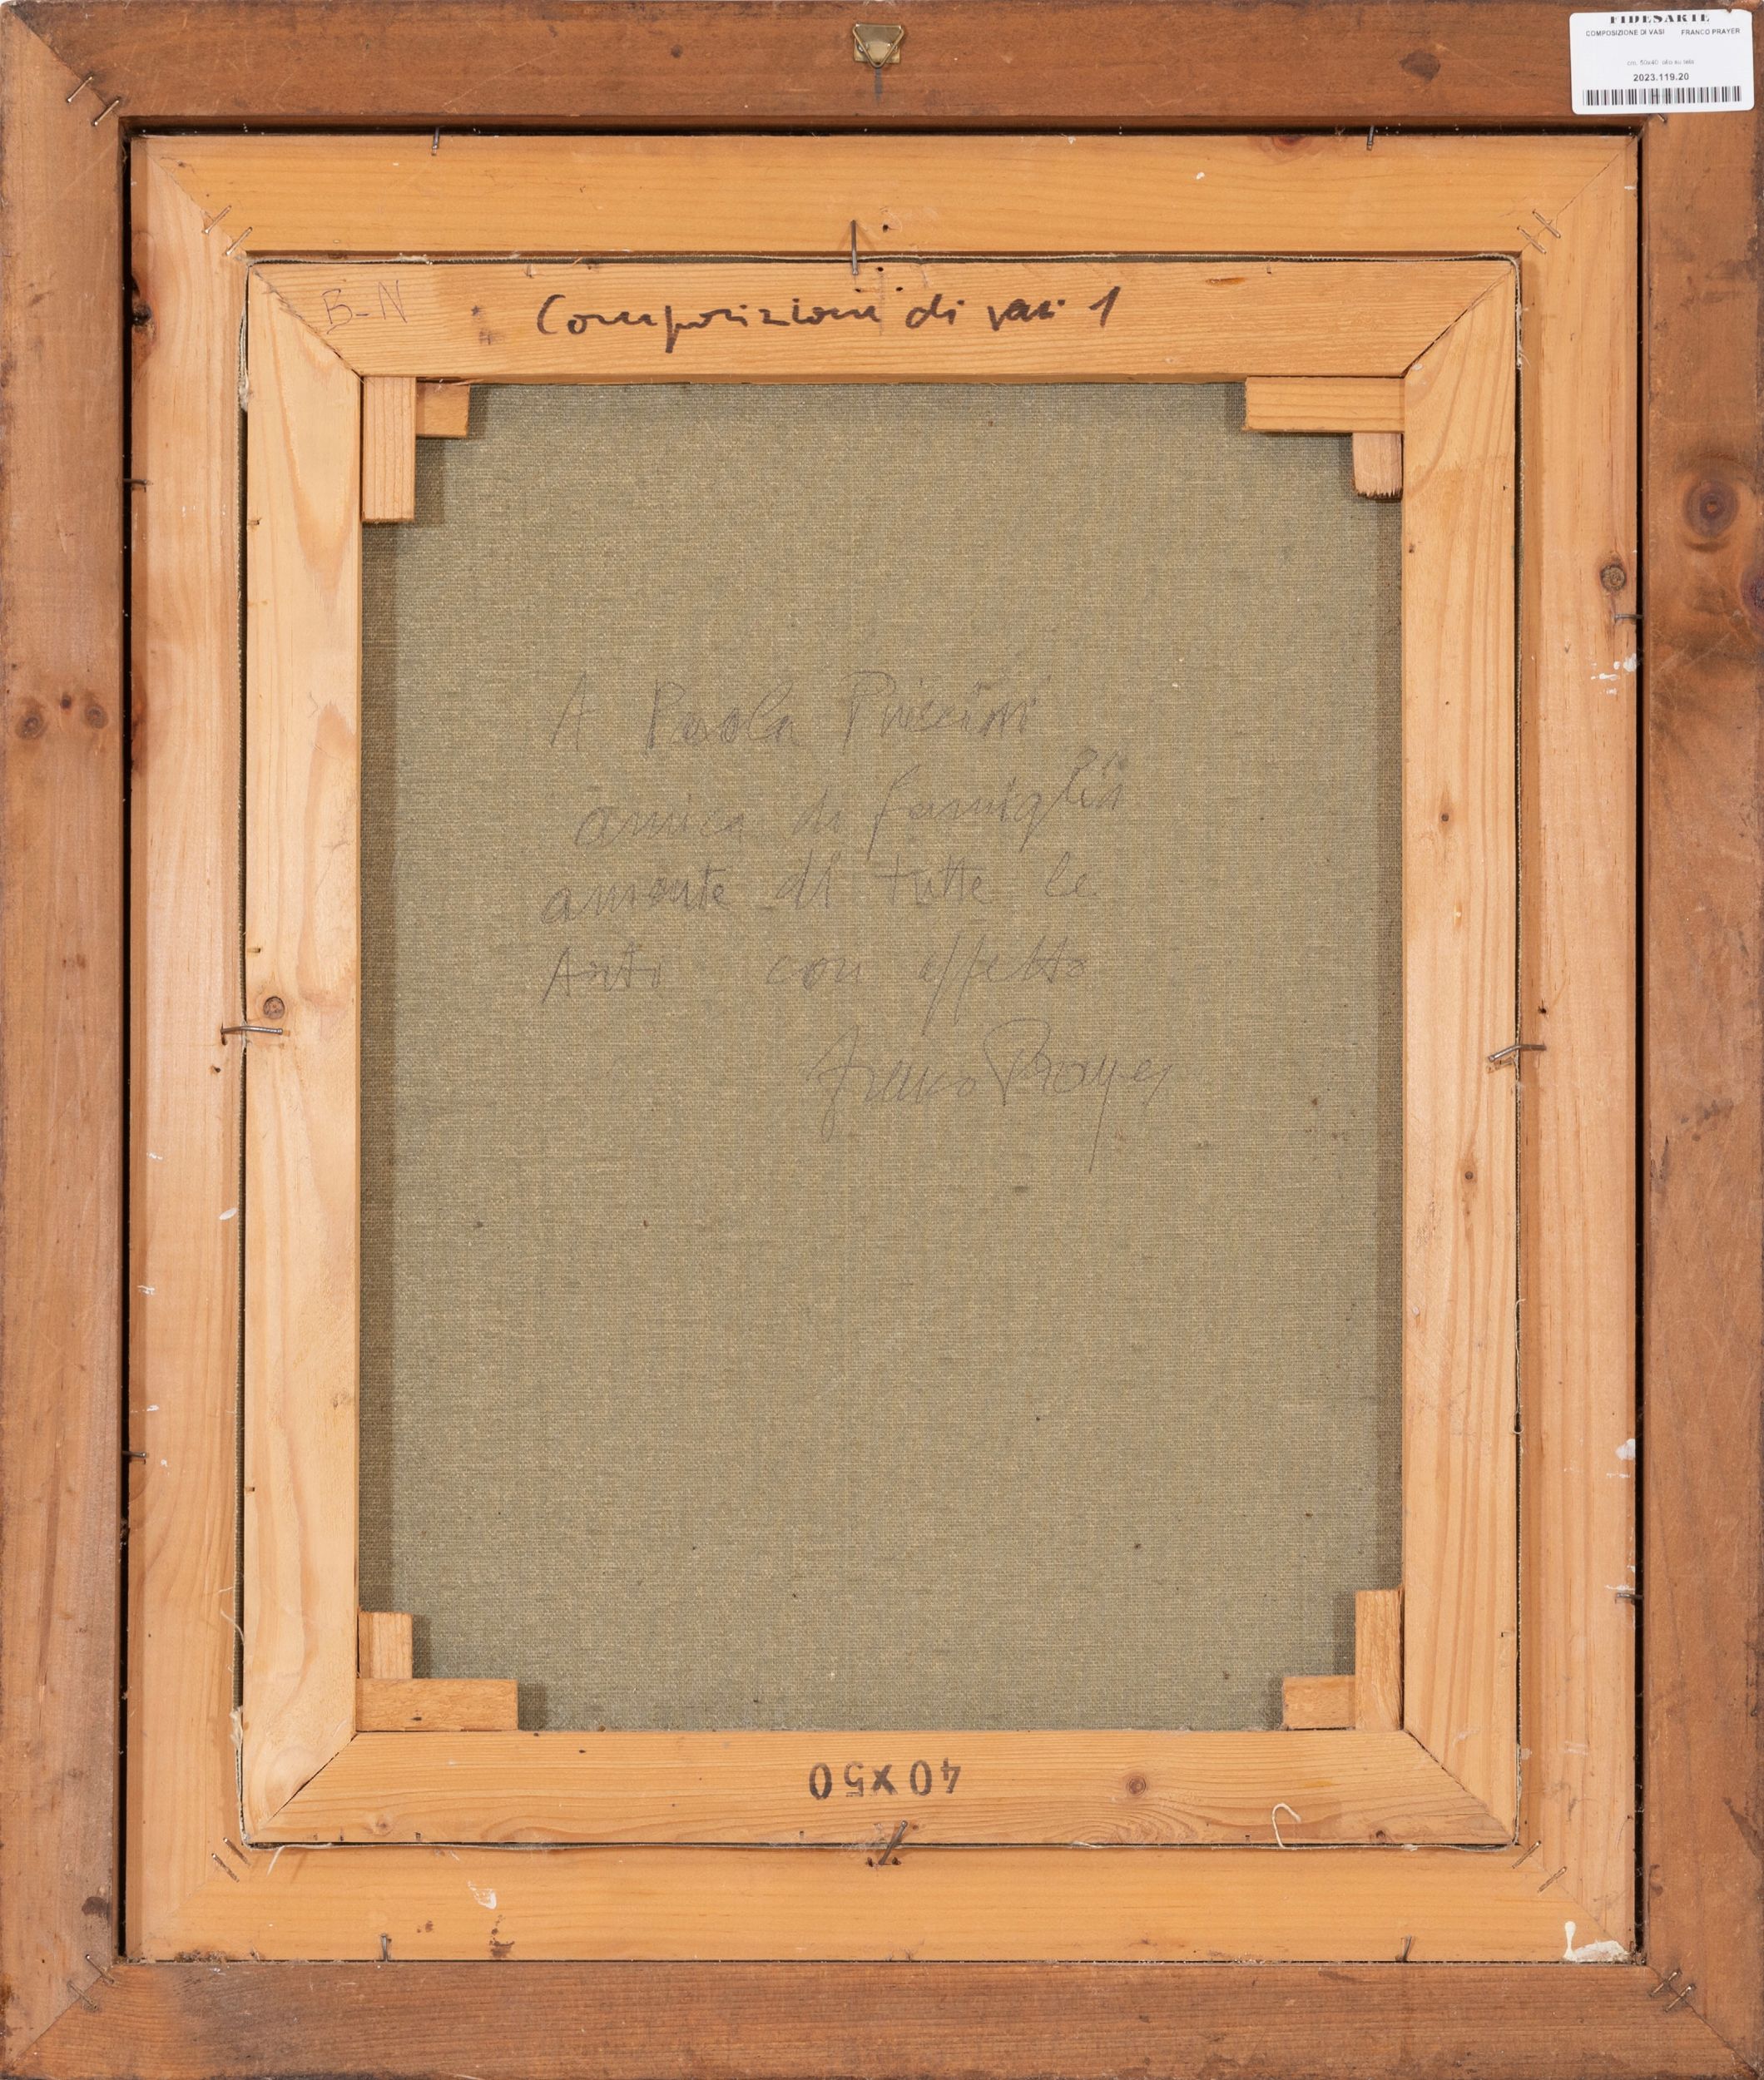 FIDESARTE
COMPOSIZIONE DI VASI FRANCO PRAYER
cm. 50x40 olio su tela
2023.119.20
B-N
Composizione di vasi 1
A Paola Puccini
amica di famiglia
amante di tutte le
Arti con affetto
Franco Prayer
40x50